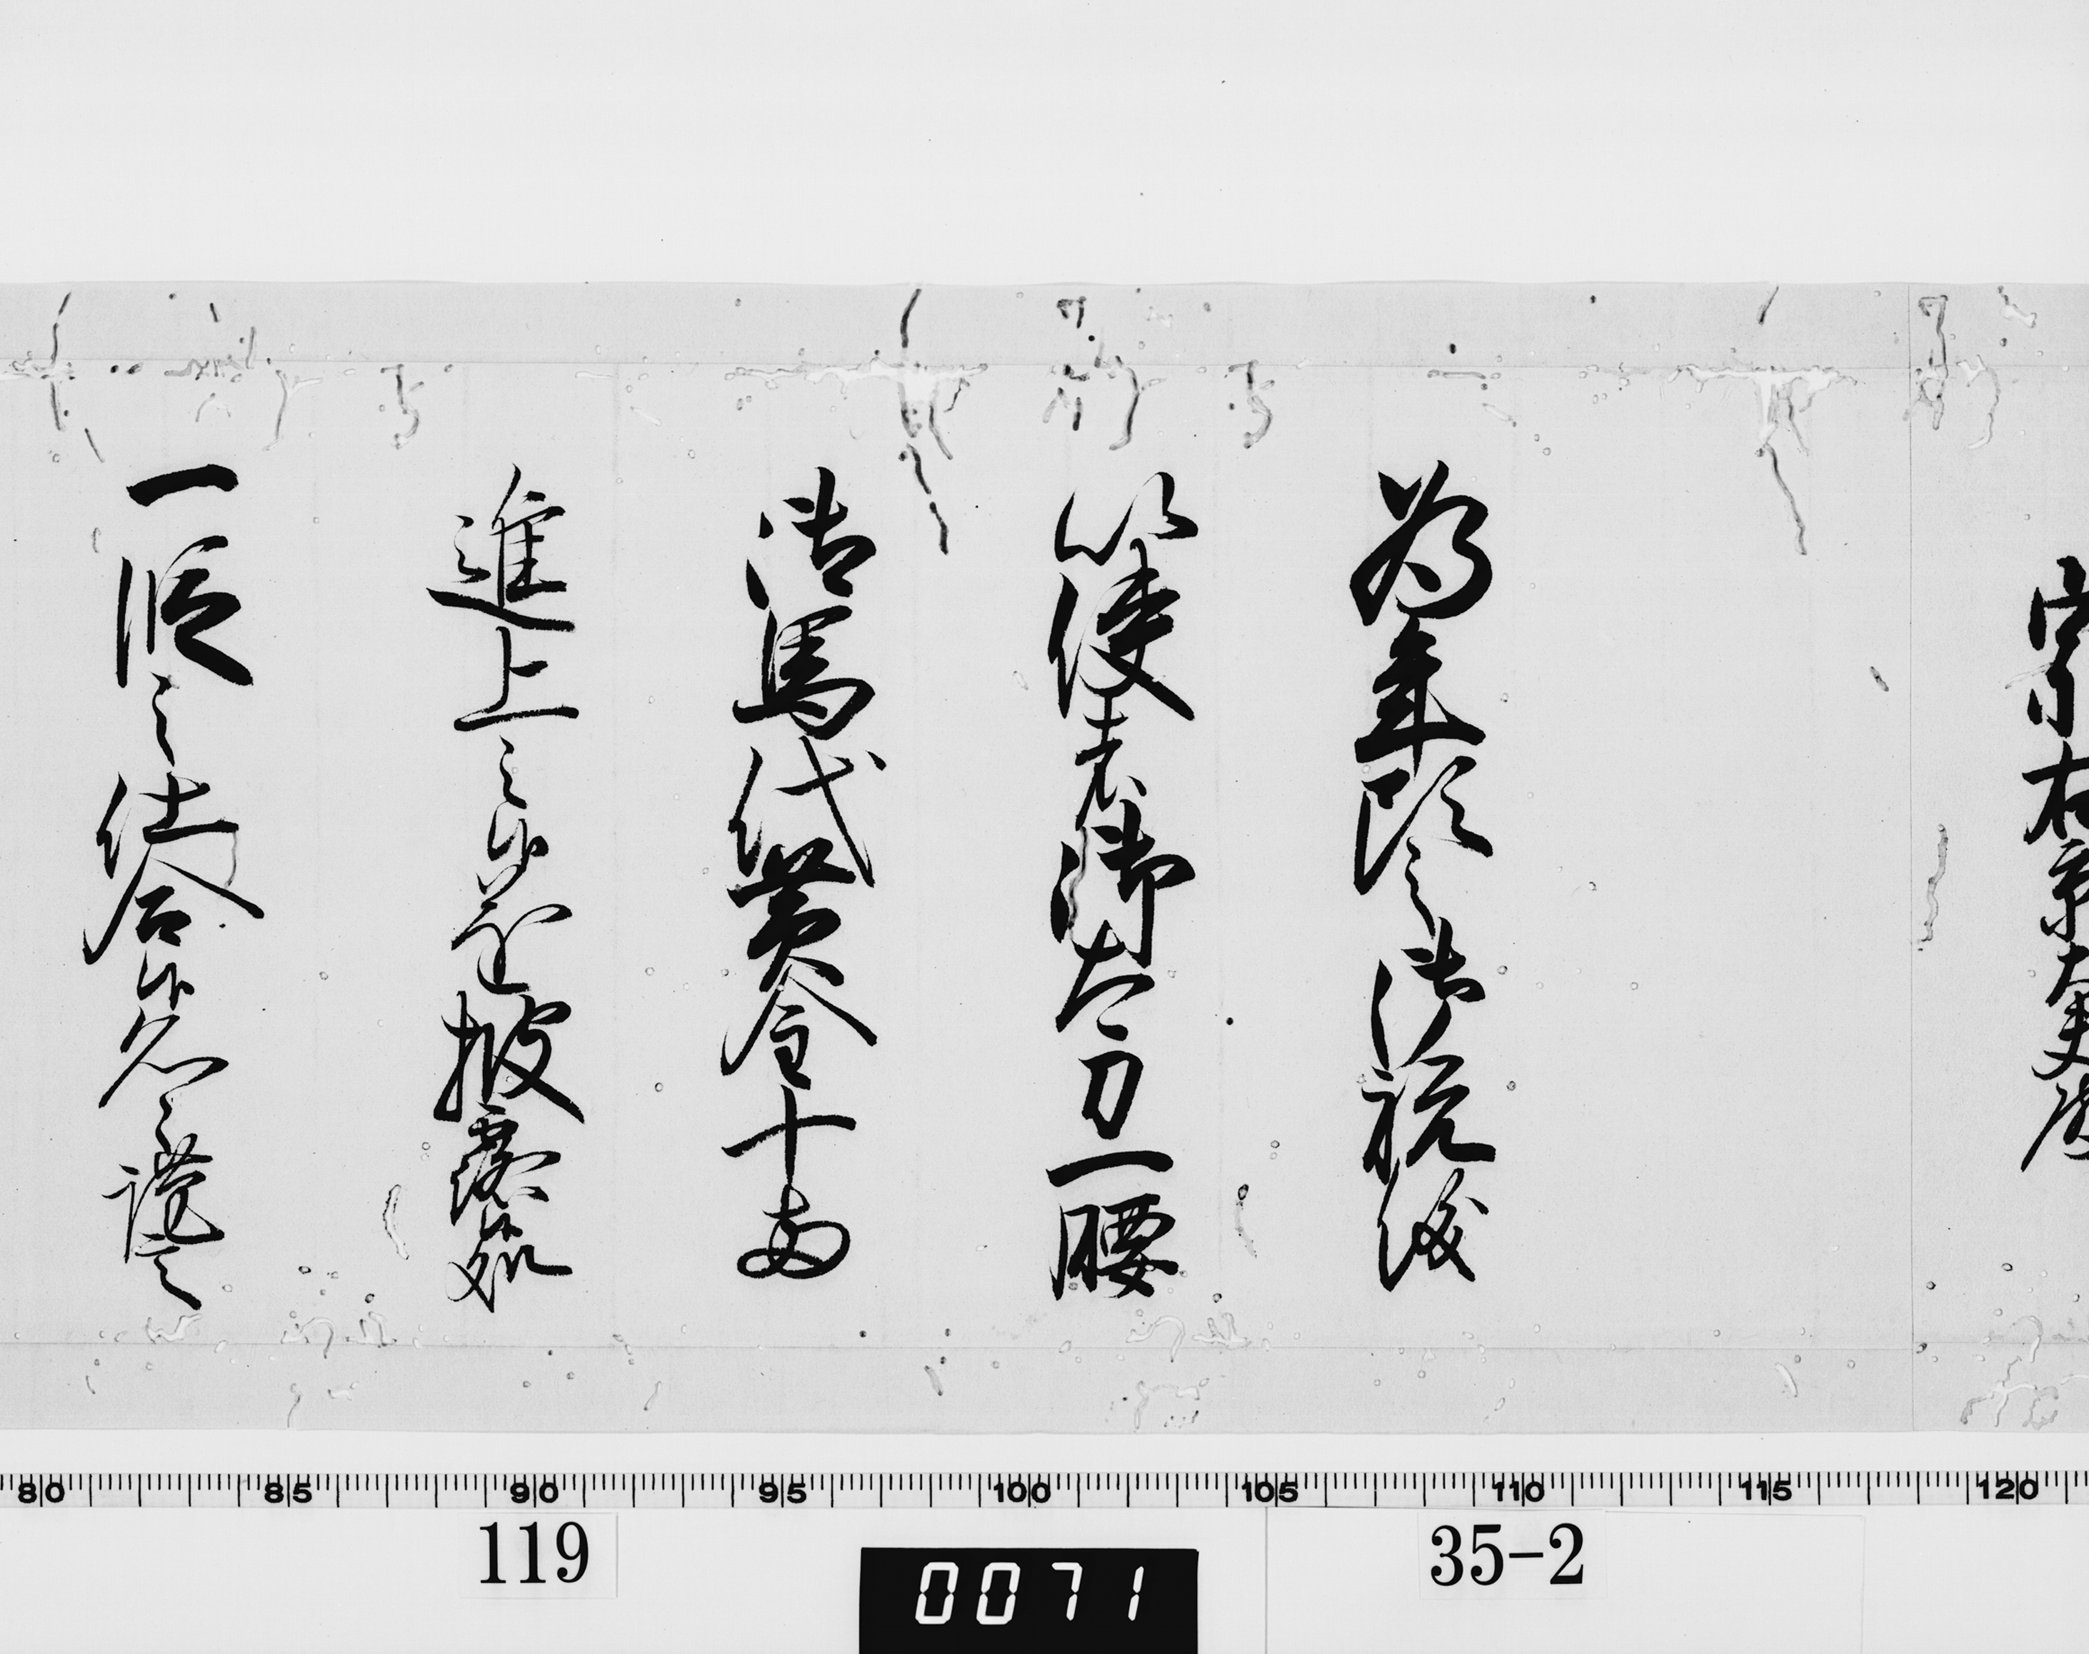 宗右京大夫殿
為年頭之御祝儀
以使者御太刀一腰
御馬代黄金十両
進上之候遂披露候処
一段之仕合候恐々謹言
80 85 90 95 100 105 110 115 120
119
0071
35-2